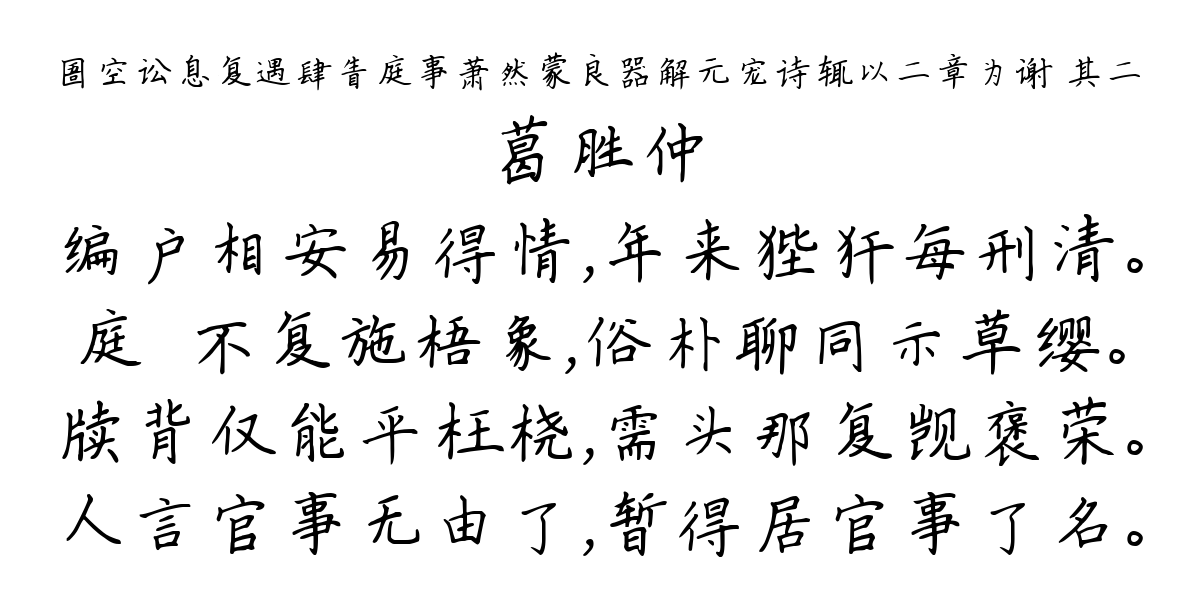 圄空讼息复遇肆眚庭事萧然蒙良器解元宠诗辄以二章为谢 其二
葛胜仲
编户相安易得情,年来狴犴每刑清。
庭 不复施梧象,俗朴聊同示草缨。
牍背仅能平枉桡,需头那复觊褒荣。
人言官事无由了,暂得居官事了名。